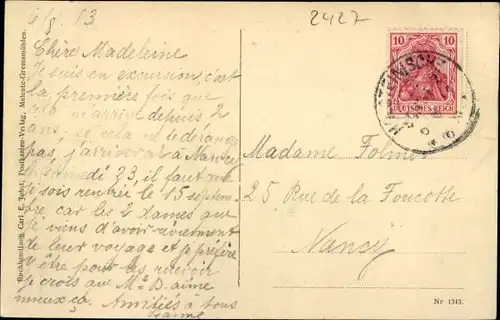 6/8 13
2427
Chère Madeleine
Je suis en excursion, c'est
la première fois que
ça m'arrive depuis 2
ans. si cela ne te dérange
pas, j'arriverai à Nancy
samedi 23, il faut que
je sois rentrée le 15 septem-
bre car les 2 dames que
je viens d'avoir reviennent
de leur voyage et je préfère
y être pour les recevoir
je crois que Me B. aime
mieux ça. Amitiés à tous
Jeanne
Buchhandlung Carl E. Postkarten-Verlag, Malente-Gremsmühlen.
10 10
DEUTSCHES REICH
Madame Folmer
25 Rue de la Foucotte
Nancy
Nr 1343.